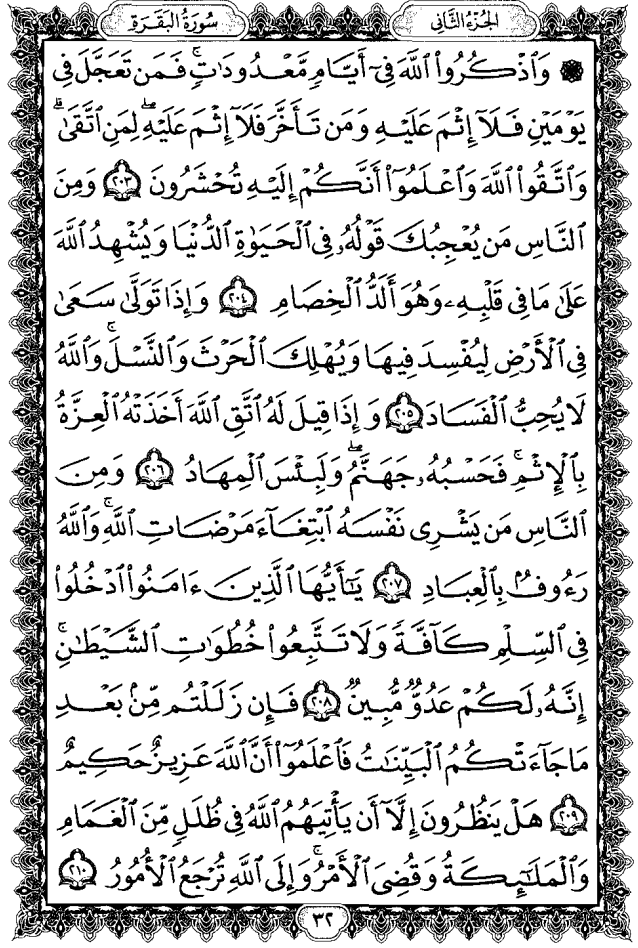 الجزء الثاني سورة البقرة
۞ وَٱذْكُرُوا۟ ٱللَّهَ فِىٓ أَيَّامٍ مَّعْدُودَٰتٍ ۚ فَمَن تَعَجَّلَ فِى
يَوْمَيْنِ فَلَآ إِثْمَ عَلَيْهِ وَمَن تَأَخَّرَ فَلَآ إِثْمَ عَلَيْهِ ۖ لِمَنِ ٱتَّقَىٰ ۗ
وَٱتَّقُوا۟ ٱللَّهَ وَٱعْلَمُوٓا۟ أَنَّكُمْ إِلَيْهِ تُحْشَرُونَ ٢٠٣ وَمِنَ
ٱلنَّاسِ مَن يُعْجِبُكَ قَوْلُهُۥ فِى ٱلْحَيَوٰةِ ٱلدُّنْيَا وَيُشْهِدُ ٱللَّهَ
عَلَىٰ مَا فِى قَلْبِهِۦ وَهُوَ أَلَدُّ ٱلْخِصَامِ ٢٠٤ وَإِذَا تَوَلَّىٰ سَعَىٰ
فِى ٱلْأَرْضِ لِيُفْسِدَ فِيهَا وَيُهْلِكَ ٱلْحَرْثَ وَٱلنَّسْلَ ۗ وَٱللَّهُ
لَا يُحِبُّ ٱلْفَسَادَ ٢٠٥ وَإِذَا قِيلَ لَهُ ٱتَّقِ ٱللَّهَ أَخَذَتْهُ ٱلْعِزَّةُ
بِٱلْإِثْمِ ۚ فَحَسْبُهُۥ جَهَنَّمُ ۖ وَلَبِئْسَ ٱلْمِهَادُ ٢٠٦ وَمِنَ
ٱلنَّاسِ مَن يَشْرِى نَفْسَهُ ٱبْتِغَآءَ مَرْضَاتِ ٱللَّهِ ۗ وَٱللَّهُ
رَءُوفٌۢ بِٱلْعِبَادِ ٢٠٧ يَٰٓأَيُّهَا ٱلَّذِينَ ءَامَنُوا۟ ٱدْخُلُوا۟
فِى ٱلسِّلْمِ كَآفَّةً وَلَا تَتَّبِعُوا۟ خُطُوَٰتِ ٱلشَّيْطَٰنِ ۚ
إِنَّهُۥ لَكُمْ عَدُوٌّ مُّبِينٌ ٢٠٨ فَإِن زَلَلْتُم مِّنۢ بَعْدِ
مَا جَآءَتْكُمُ ٱلْبَيِّنَٰتُ فَٱعْلَمُوٓا۟ أَنَّ ٱللَّهَ عَزِيزٌ حَكِيمٌ
٢٠٩ هَلْ يَنظُرُونَ إِلَّآ أَن يَأْتِيَهُمُ ٱللَّهُ فِى ظُلَلٍ مِّنَ ٱلْغَمَامِ
وَٱلْمَلَٰٓئِكَةُ وَقُضِىَ ٱلْأَمْرُ ۚ وَإِلَى ٱللَّهِ تُرْجَعُ ٱلْأُمُورُ ٢١٠
٣٢